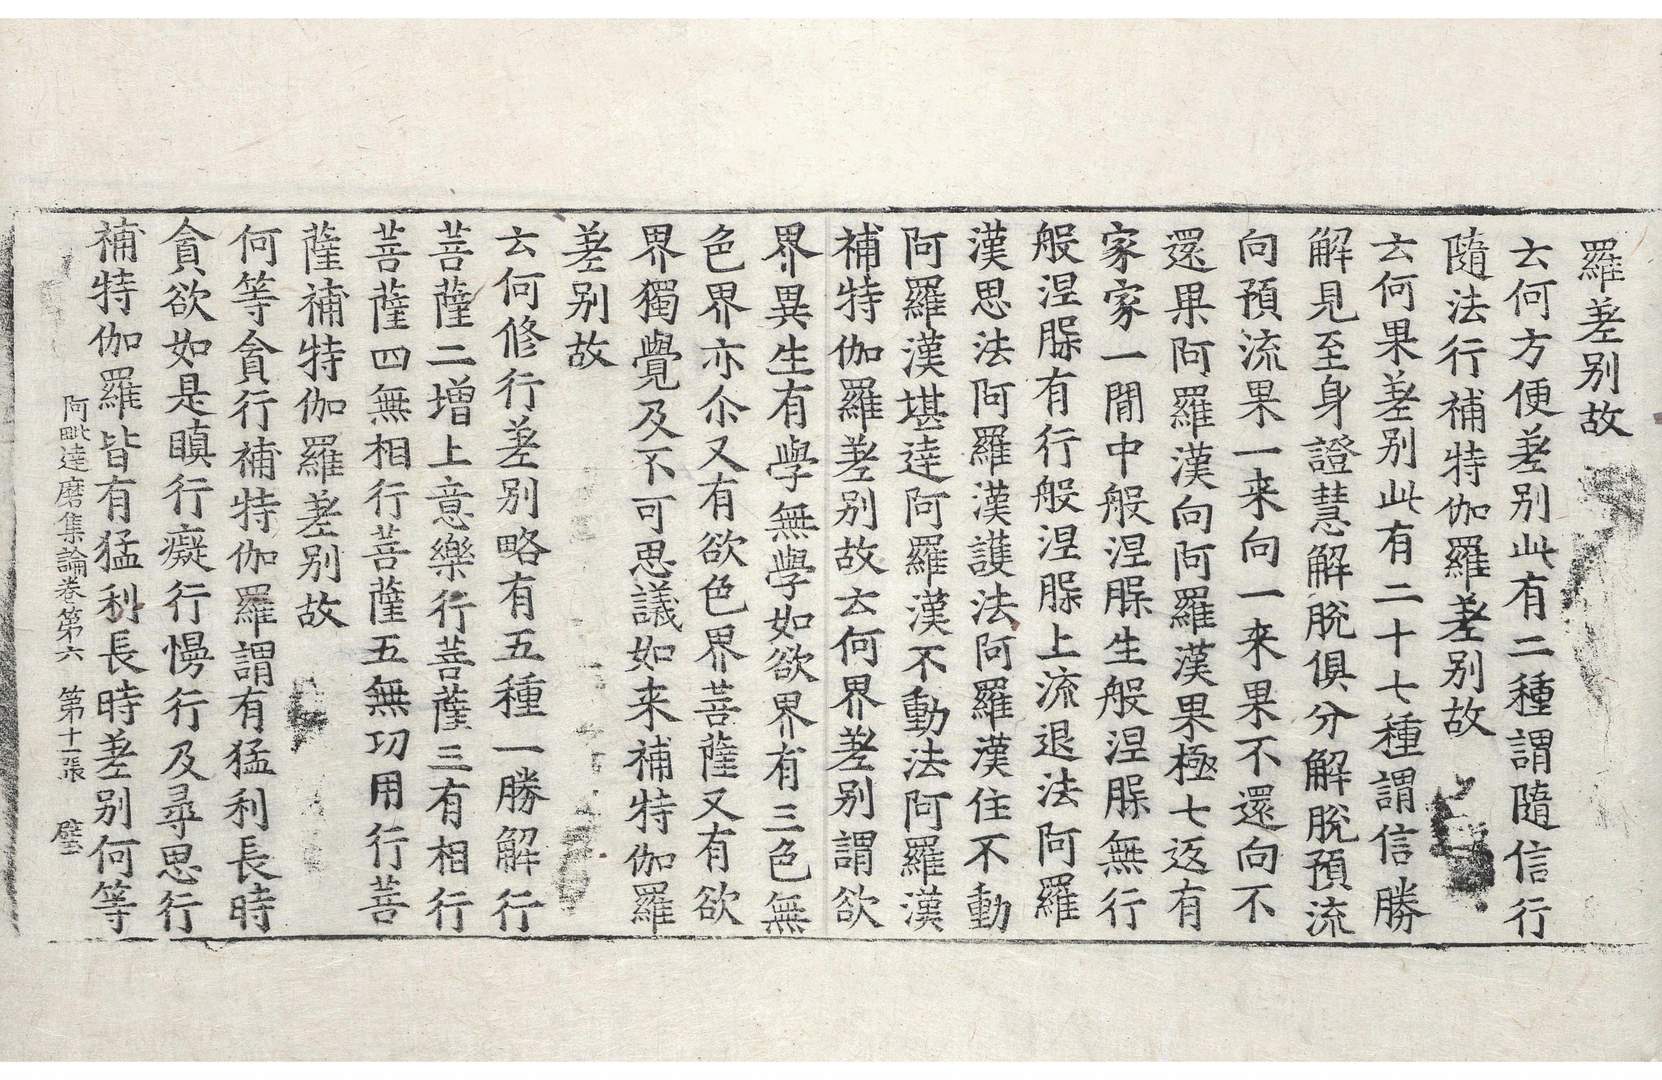 羅差别故
云何方便差别此有二種謂隨信行
隨法行補特伽羅差别故
云何果差别此有二十七種謂信勝
解見至身證慧解脫俱分解脫預流
向預流果一来向一来果不還向不
還果阿羅漢向阿羅漢果極七返有
家家一閒中般涅槃生般涅槃無行
般涅槃有行般涅槃上流退法阿羅
漢思法阿羅漢護法阿羅漢住不動
阿羅漢堪達阿羅漢不動法阿羅漢
補特伽羅差别故云何界差别謂欲
界異生有學無學如欲界有三色無
色界亦尒又有欲色界菩薩又有欲
界獨覺及不可思議如来補特伽羅
差别故
云何修行差别略有五種一勝解行
菩薩二增上意樂行菩薩三有相行
菩薩四無相行菩薩五無功用行菩
薩補特伽羅差别故
何等貪行補特伽羅謂有猛利長時
貪欲如是瞋行癡行慢行及尋思行
補特伽羅皆有猛利長時差别何等
阿毗達磨集論卷第六 第十一張 璧